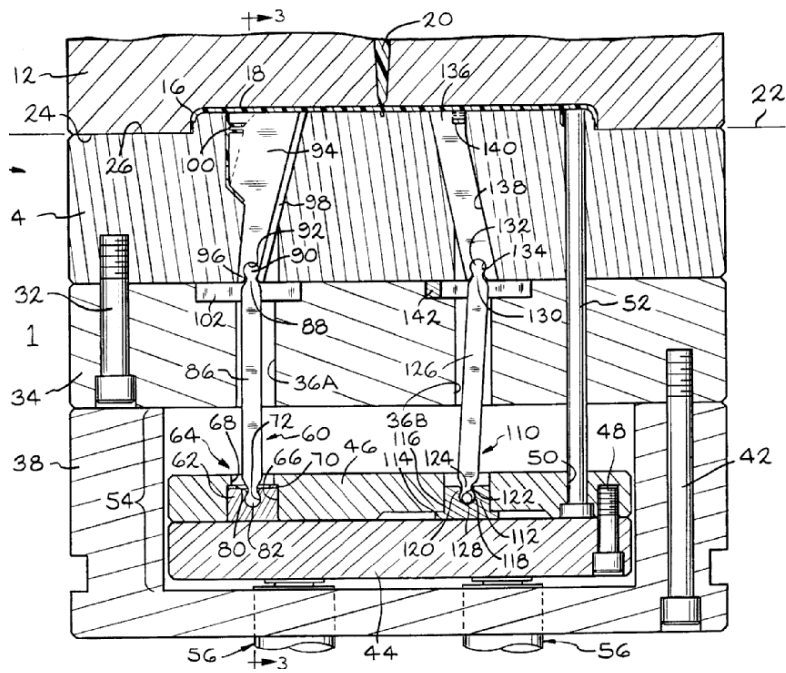 3
20
12
16
18
136
24
22
26
100
94
140
98
138
4
92
132
96
90
134
32
102
88
142
130
52
1
86
36A
126
34
72
36B
68
60
110
48
38
64
66
70
46
116
124
50
42
62
114
54
122
80
82
120
128
112
118
56
3
44
56